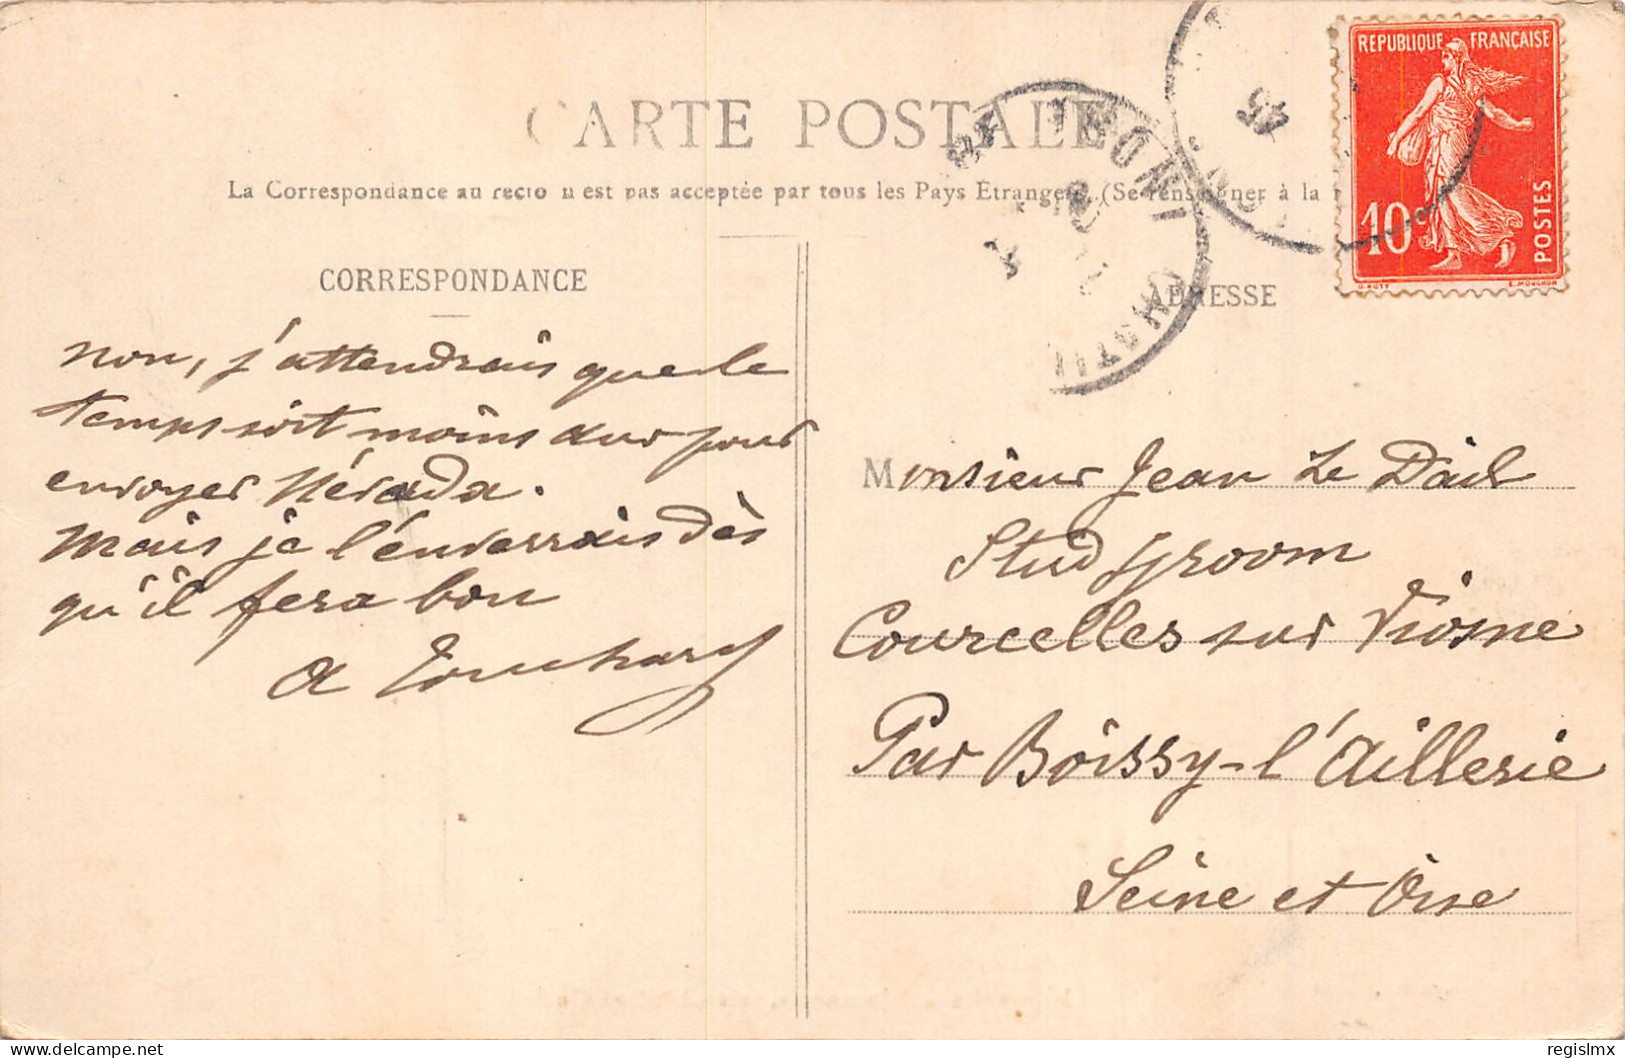 CARTE POSTALE
La Correspondance au recto n'est pas acceptée par tous les Pays Etrangers (Se renseigner à la
REPUBLIQUE FRANÇAISE
10c
POSTES
O. ROTY E. MOUCHON
CORRESPONDANCE
ADRESSE
non, j'attendrais que le
temps soit moins dur pour
envoyer Névada.
Mais je l'enverrais dès
qu'il fera bon
A Touchard
Monsieur Jean Le Dail
Stud groom
Courcelles sur Viosne
Par Boissy-l'Aillerie
Seine et Oise
delcampe.net
regislmx